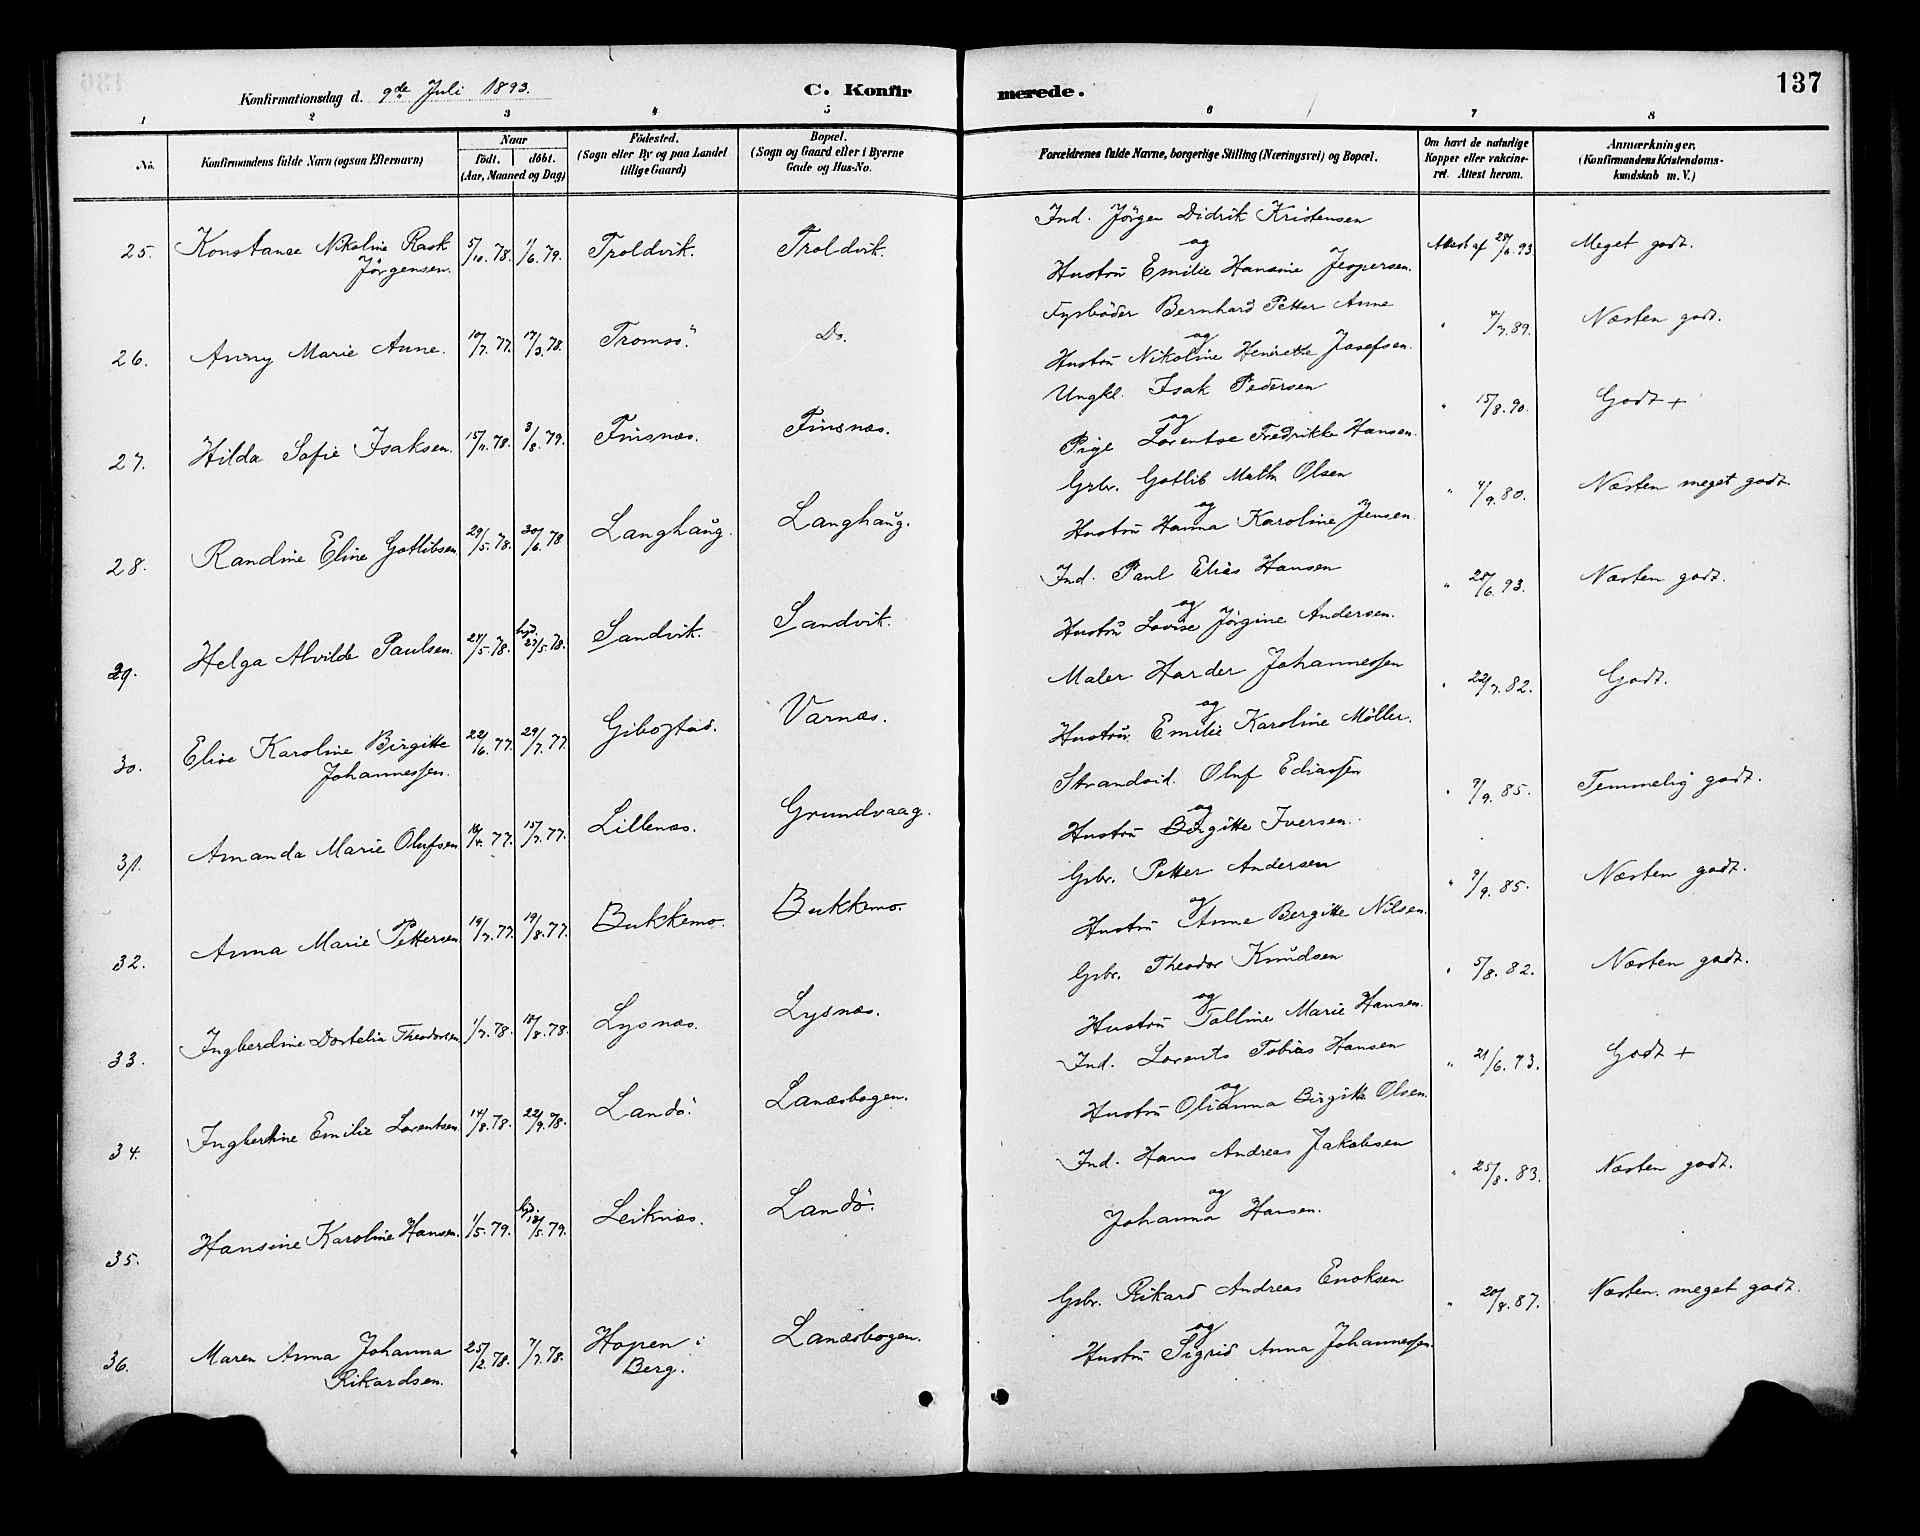 137
Konfirmationsdag d. 9de Juli 1893.
C. Konfirmerede.
1 2 3 4 5 6 7 8
No.
Konfirmandens fulde Navn (ogsaa Efternavn)
Naar
födt. döbt.
(Aar, Maaned og Dag)
Födested.
(Sogn eller By og paa Landet
tillige Gaard)
Bopæl.
(Sogn og Gaard eller i Byerne
Gade og Hus-No.
Forældrenes fulde Navne, borgerlige Stilling (Næringsvei) og Bopæl.
Om havt de naturlige
Kopper eller vakcine-
ret. Attest herom.
Anmærkninger.
(Konfirmandens Kristendoms-
kundskab m. V.)
25. Konstanse Nikoline Rask 5/10.78. 1/6.79. Troldvik. Troldvik. Ind. Jörgen Didrik Kristensen
Jörgensen. og Attest af 28/6.93. Meget godt.
Hustru Emilie Hansine Jespersen.
26. Anny Marie Aune. 10/7.77. 17/3.78. Tromsö. Do. Fyrböder Bernhard Petter Aune
og " 4/7.89. Næsten godt.
Hustru Nikoline Henrette Josefsen.
27. Hilda Sofie Isaksen. 15/7.78. 3/8.79. Finsnæs. Finsnæs. Ungkl. Isak Pedersen
og " 15/8.90. Godt +
Pige Lorentse Fredrikke Hansen.
28. Randine Eline Gotlibsen. 29/5.78. 30/6.78 Langhaug. Langhaug. Gsbr. Gotlib Math Olsen
og " 4/9.80. Næsten meget godt.
Hustru Hanna Karoline Jensen.
29. Helga Alvilde Paulsen. 21/5.78. hjd. 27/5.78. Sandvik. Sandvik. Ind. Paul Elias Hansen
og " 28/6.93. Næsten godt.
Hustru Lovise Jörgine Andersen.
30. Elise Karoline Birgitte 22/6.77. 29/7.77. Gibostad. Varnæs. Maler Harder Johannessen
Johannessen. og " 22/7.82. Godt.
Hustru Emilie Karoline Möller.
31. Amanda Marie Olufsen 10/4.77. 15/7.77. Lillenæs. Grundvaag. Strandsid. Oluf Ediassen
og " 9/9.85. Temmelig godt.
Hustru Birgitte Iversen.
32. Anna Marie Pettersen. 19/7.77. 19/8.77. Bukkemo. Bukkemo. Gsbr. Petter Andersen
og " 9/9.85. Næsten godt.
Hustru Anne Bergitte Nilsen.
33. Ingberdine Dortelia Theodorsen 1/7.78. 18/8.78. Lysnæs. Lysnæs. Gsbr. Theodor Knudsen
og " 5/8.82. Næsten godt.
Hustru Talline Marie Hansen.
34. Ingbertine Emilie Lorentsen. 14/8.78. 22/9.78. Landö. Lanæsbogen. Ind. Lorents Tobias Hansen
og " 21/6.73. Godt +
Hustru Olianna Birgitte Olsen.
35. Hansine Karoline Hansen. 1/5.79. hjd. 18/5.79. Leiknæs. Landö. Ind. Hans Andreas Jakobsen
og " 25/8.83. Næsten godt.
Johanna Hansen.
36. Maren Anna Johanna 25/2.78. 7/7.78. Hopen i Lanæsbogen. Gsbr. Rikard Andreas Enoksen
Rikardsen. Berg. og " 20/8.87. Næsten meget godt.
Hustru Sigrid Anna Johannessen.